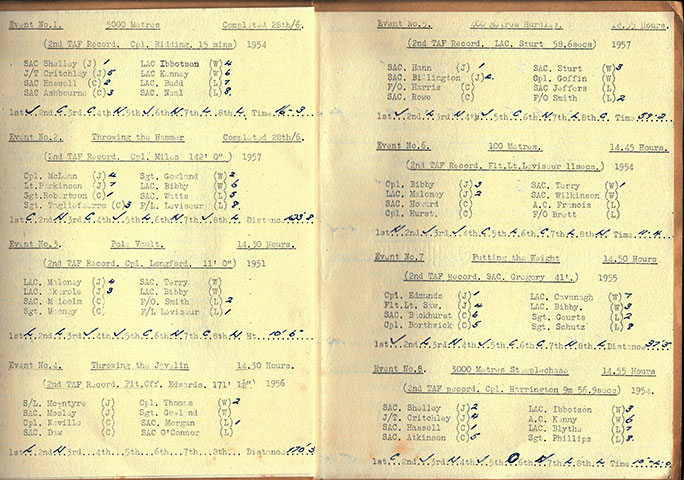 Event No.1. 5000 Metres Completed 28th/6.
(2nd TAF Record. Cpl. Ridding. 15 mins) 1954
SAC Shelley (J) 1 LAC Ibbotson (W) 4
J/T Critchley (J) 5 LAC Kenney (W) 6
SAC Hassell (C) 2 LAC Budd (L) 7
SAC Ashbourne (C) 3 SAC Neal (L) 8
1st J 2nd C 3rd C 4th W 5th J 6th W 7th L 8th L Time 16-3
Event No.2. Throwing the Hammer Completed 28th/6.
(2nd TAF Record. Cpl. Miles 142' 0") 1957
Cpl. McLenn (J) 4 Sgt. Gowland (W) 2
Lt. Parkinson (J) 7 LAC. Bibby (W) 6
Sgt. Robertson (C) 1 SAC. Watts (L) 5
Sgt. Tagliaferro (C) 3 F/L Leviseur (L) 8
1st C 2nd W 3rd C 4th J 5th L 6th W 7th J 8th L Distance
Event No.3. Pole Vault. 14.30 Hours.
(2nd TAF Record. Cpl. Longford. 11' 0") 1951
LAC. Maloney (J) 4 SAC. Terry (W)
LAC. (J) 3 LAC. Bibby (W)
SAC. Malcolm (C) F/O. Smith (L) 2
Sgt. Mooney (C) F/L Leviseur (L) 1
1st L 2nd L 3rd J 4th J 5th 6th 7th 8th Ht. 10'6"
Event No.4. Throwing the Javelin 14.30 Hours.
(2nd TAF Record. Plt.Off. Edwards. 171' ) 1956
S/L. McIntyre (J) Cpl. Thomas (W) 2
SAC. Mosley (J) Sgt. Gowland (W)
Cpl. Neville (C) SAC. Morgan (L) 1
SAC. Daw (C) SAC O'Connor (L)
1st L 2nd W 3rd 4th 5th 6th 7th 8th Distance 170'3
Event No.5. 400 Metres Hurdles. 14.35 Hours.
(2nd TAF Record. LAC. Sturt 58.6secs) 1957
SAC. Hann (J) 1 SAC. Sturt (W) 3
SAC. Billington (J) Cpl. Goffin (W)
F/O. Harris (C) SAC Jeffers (L)
SAC. Rowe (C) F/O Smith (L) 2
1st J 2nd L 3rd W 4th J 5th 6th 7th 8th Time 59-2
Event No.6. 100 Metres. 14.45 Hours.
(2nd TAF Record. Flt.Lt. Leviseur 11secs.) 1954
Cpl. Bibby (J) 3 SAC. Terry (W) 1
LAC. Maloney (J) 2 SAC. Wilkinson (W)
SAC. Howard (C) A.C. Francis (L)
Cpl. Hurst. (C) F/O Brett (L)
1st W 2nd J 3rd J 4th 5th 6th 7th 8th Time 11.4
Event No.7 Putting the Weight 14.50 Hours
(2nd TAF Record. SAC. Gregory 41'.) 1955
Cpl. Edmunds (J) 1 LAC. Cavanagh (W) 7
Flt.Lt. Saw. (J) 4 LAC. Bibby. (W) 3
SAC. Backhurst (C) 6 Sgt. Geurts (L) 2
Cpl. Borthwick (C) 5 Sgt. Schutz (L) 8
1st J 2nd L 3rd W 4th J 5th C 6th C 7th W 8th L Distance 37'3
Event No.8. 3000 Metres Steeplechase 14.55 Hours
(2nd TAF record. Cpl. Harrington 9m 56.9secs) 1954.
SAC. Shelley (J) 2 LAC. Ibbotson (W) 3
J/T. Critchley (J) 4 A.C. Kenny (W) 6
SAC. Hassell (C) 1 LAC. Blythe (L)
SAC. Atkinson (C) 5 Sgt. Phillips (L) 8
1st C 2nd J 3rd W 4th J 5th C 6th W 7th L 8th L Time